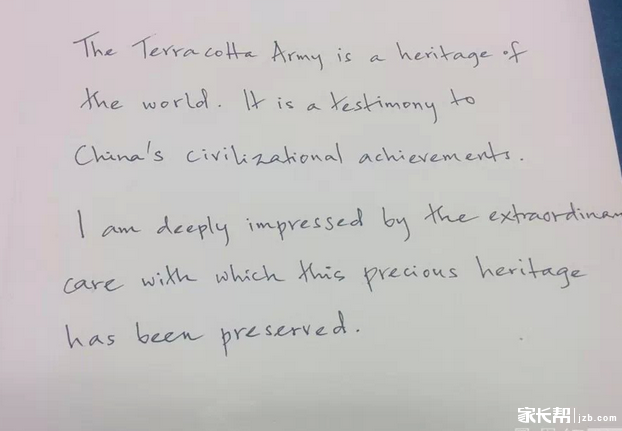 The Terracotta Army is a heritage of
the world. It is a testimony to
China's civilizational achievements.
I am deeply impressed by the extraordinary
care with which this precious heritage
has been preserved.
家长帮 jzb.com